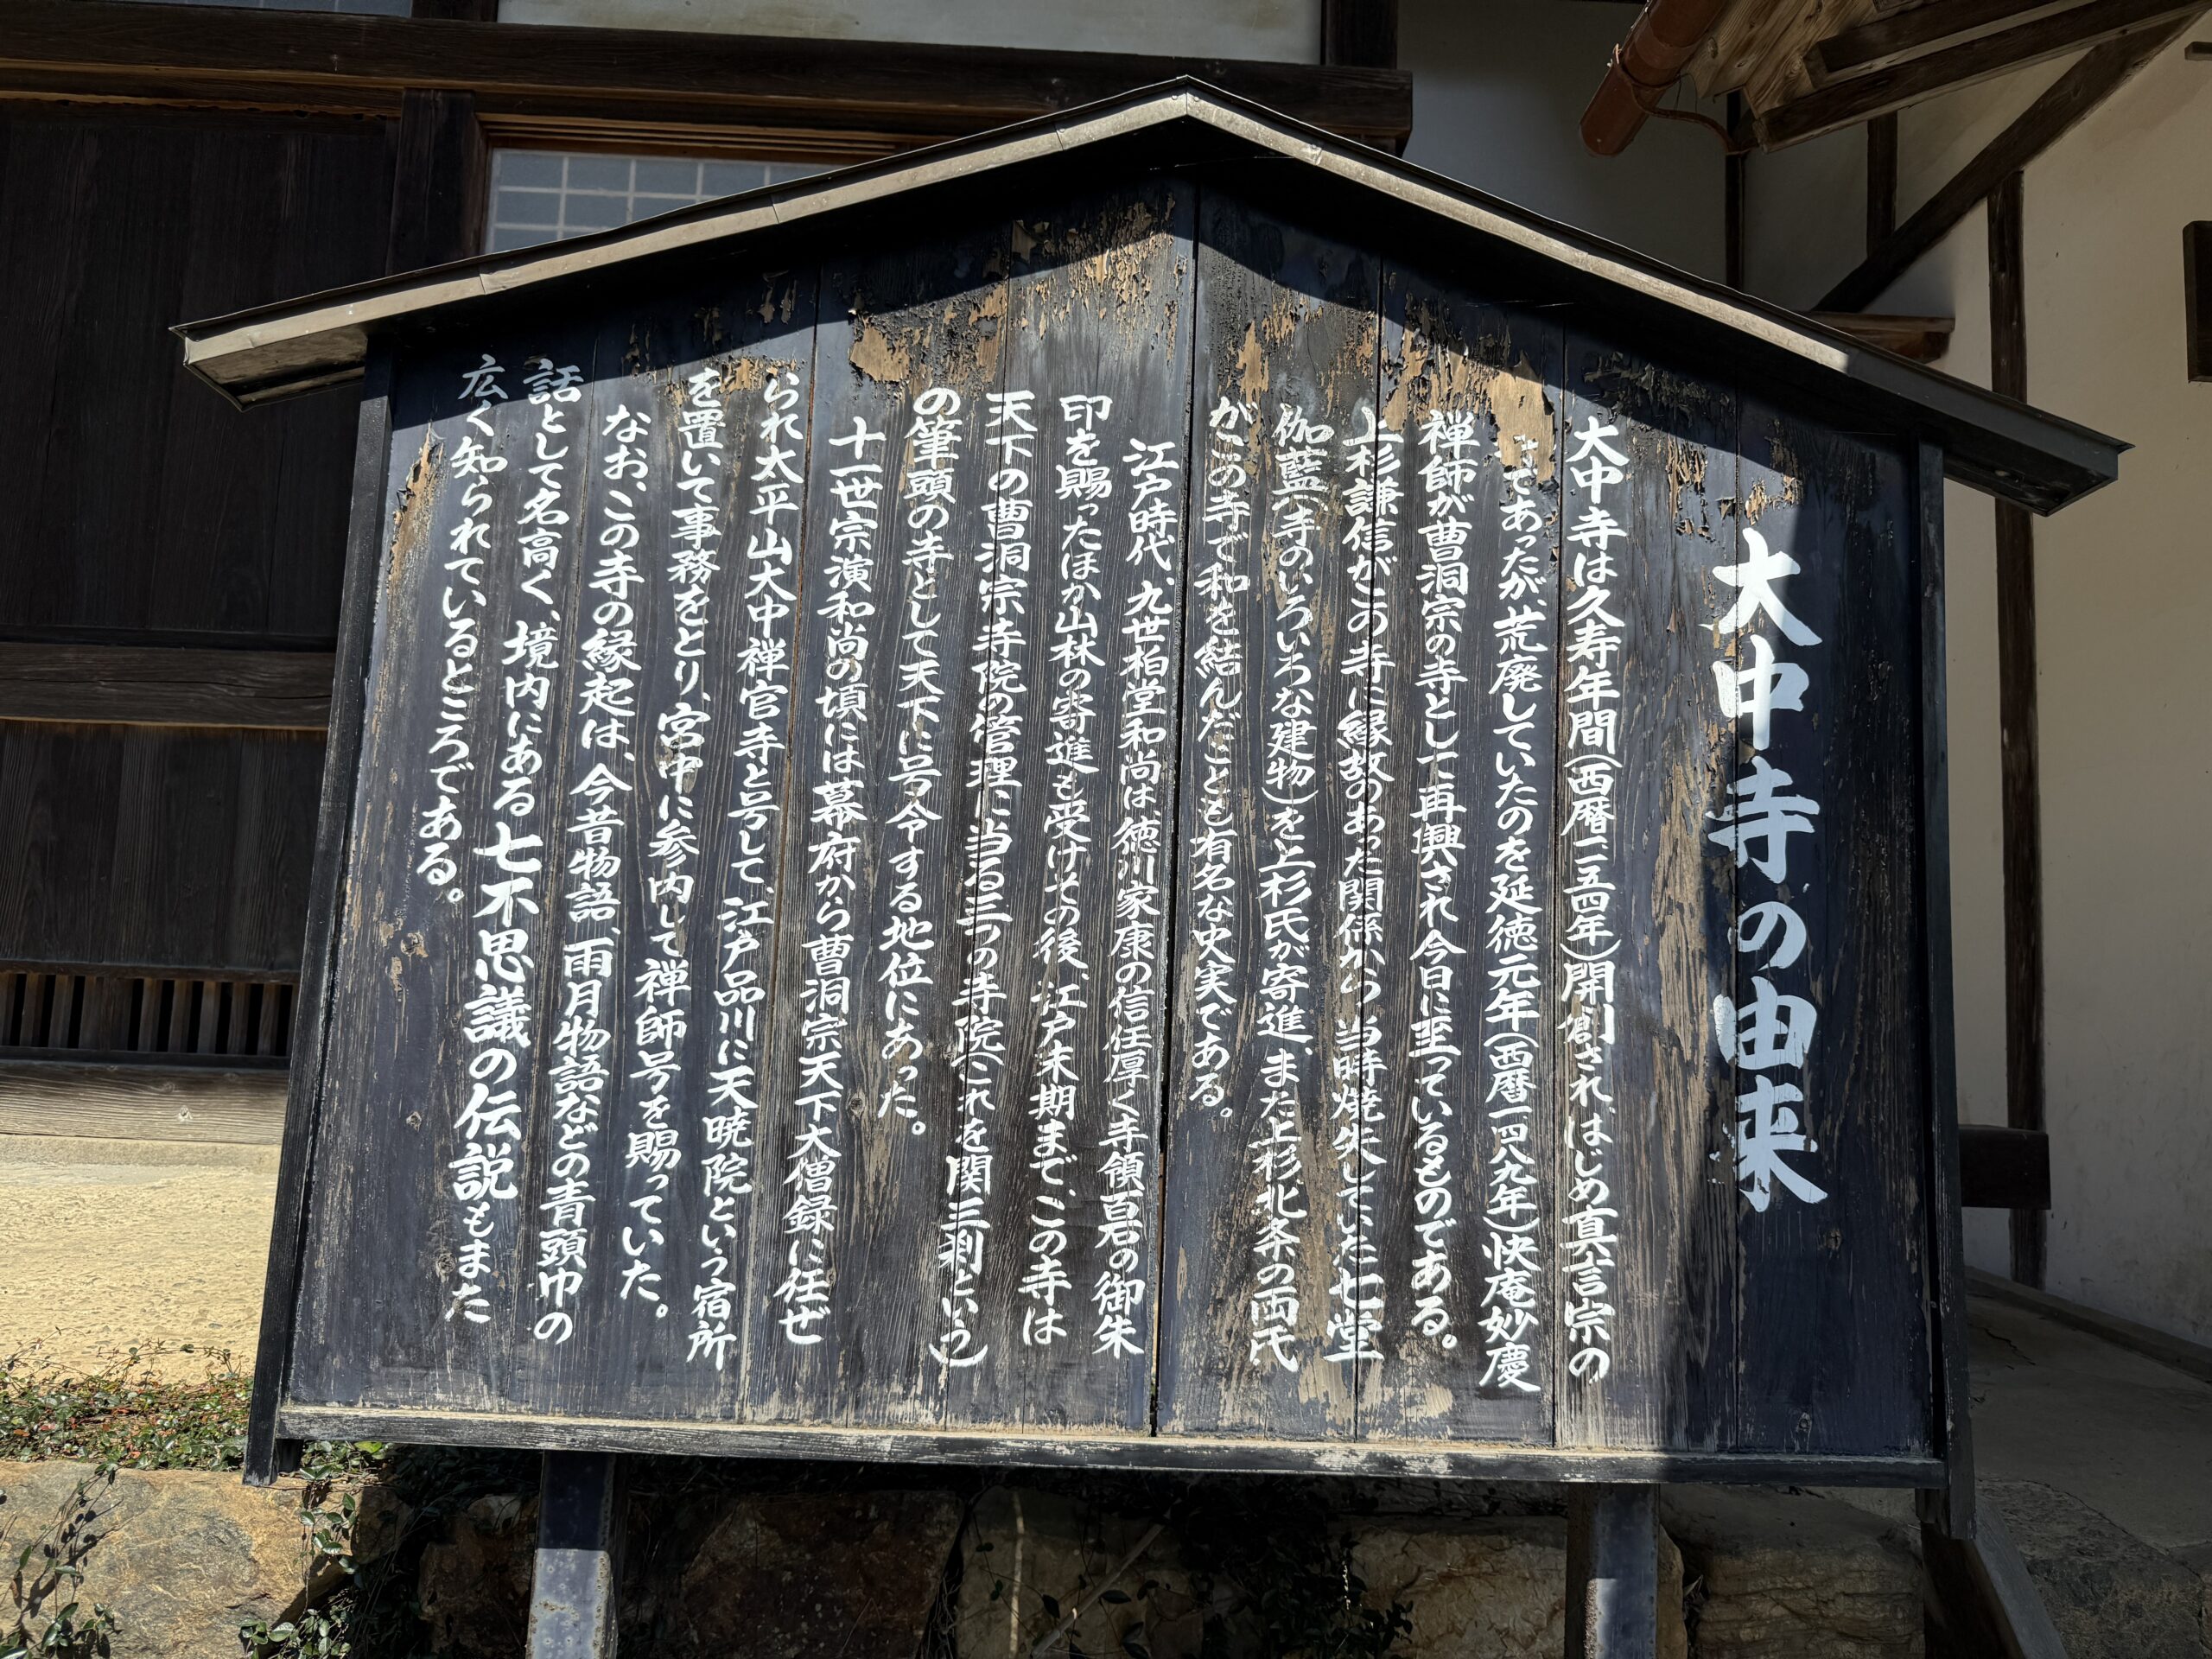 大中寺の由来
大中寺は久寿年間(西暦一一五四年)開創され、はじめ真言宗の
であったが、荒廃していたのを延徳元年(西暦一四八九年)快庵妙慶
禅師が曹洞宗の寺として再興され今日に至っているものである。
上杉謙信がこの寺に縁故のあった関係から当時焼失していた七堂
伽藍(寺のいろいろな建物)を上杉氏が寄進、また上杉、北条の両氏
がこの寺で和を結んだことも有名な史実である。
江戸時代、九世柏堂和尚は徳川家康の信任厚く寺領百石の御朱
印を賜ったほか山林の寄進も受けその後、江戸末期まで、この寺は
天下の曹洞宗寺院の管理に当る三つの寺院(これを関三刹という)
の筆頭の寺として天下に号令する地位にあった。
十一世宗演和尚の頃には幕府から曹洞宗天下大僧録に任ぜ
られ太平山大中禅官寺と号して、江戸品川に天暁院という宿所
を置いて事務をとり、宮中に参内して禅師号を賜っていた。
なお、この寺の縁起は、今昔物語、雨月物語などの青頭巾の
話として名高く、境内にある七不思議の伝説もまた
広く知られているところである。